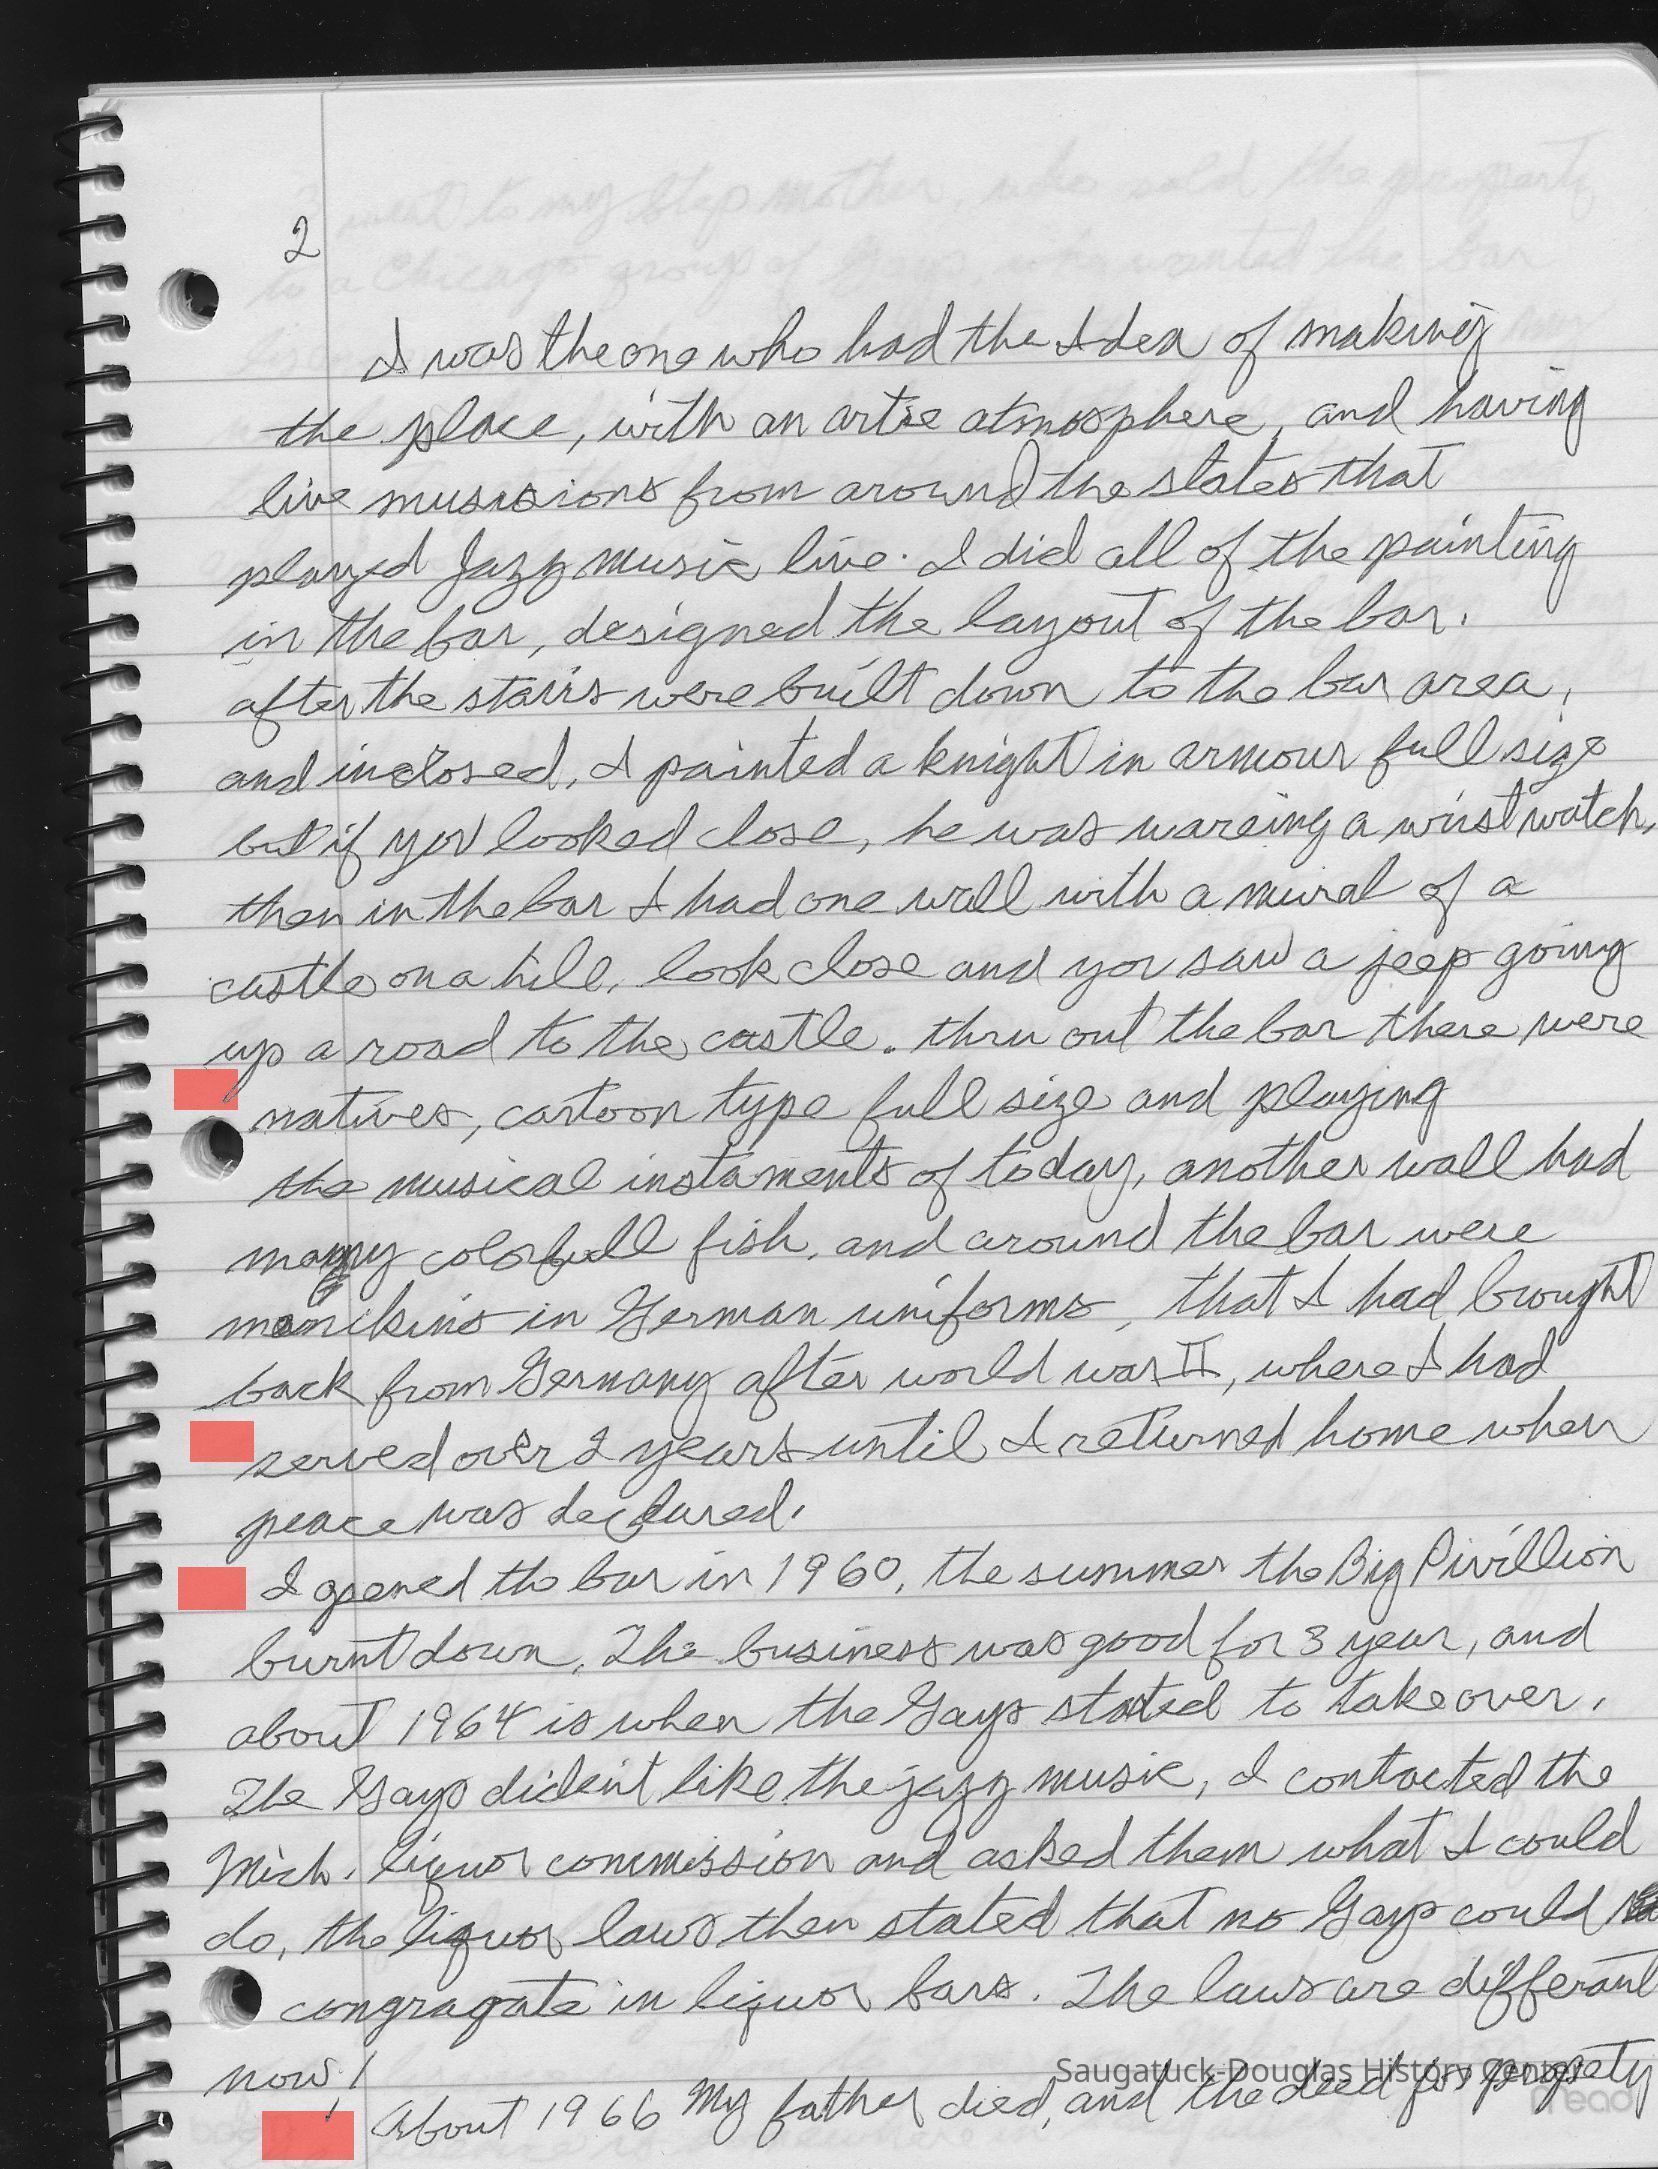 2
I was the one who had the Idea of making
the place, with an artie atmosphere, and having
live musisions from around the states that
played Jazz music live. I did all of the painting
in the bar, designed the layout of the bar.
after the stairs were built down to the bar area,
and inclosed, I painted a knight in armour full size
but if you looked close, he was wareing a wristwatch,
then in the bar I had one wall with a mural of a
castle on a hill, look close and you saw a jeep going
up a road to the castle. thru out the bar there were
natives, cartoon type full size and playing
the musical instaments of today, another wall had
many colorfull fish, and around the bar were
manikins in German uniforms, that I had brought
back from Germany after world war II, where I had
served over 2 years until I returned home when
peace was declared.
I opened the bar in 1960, the summer the Big Pivillion
burnt down. The business was good for 3 year, and
about 1964 is when the Gays stated to take over.
The Gays dident like the jazz music, I contacted the
Mich. liquor commission and asked them what I could
do, the liquor laws then stated that no Gays could
congragate in liquor bars. The laws are differant
now!
About 1966 My father died, and the deed for propety
Saugatuck-Douglas History Center